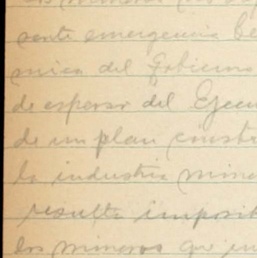 los mineros
sente emergencia be
mica del Gobierno
de esperar del Ejecu
de un plan constr
la industria mine
resulta imposib
los mineros que